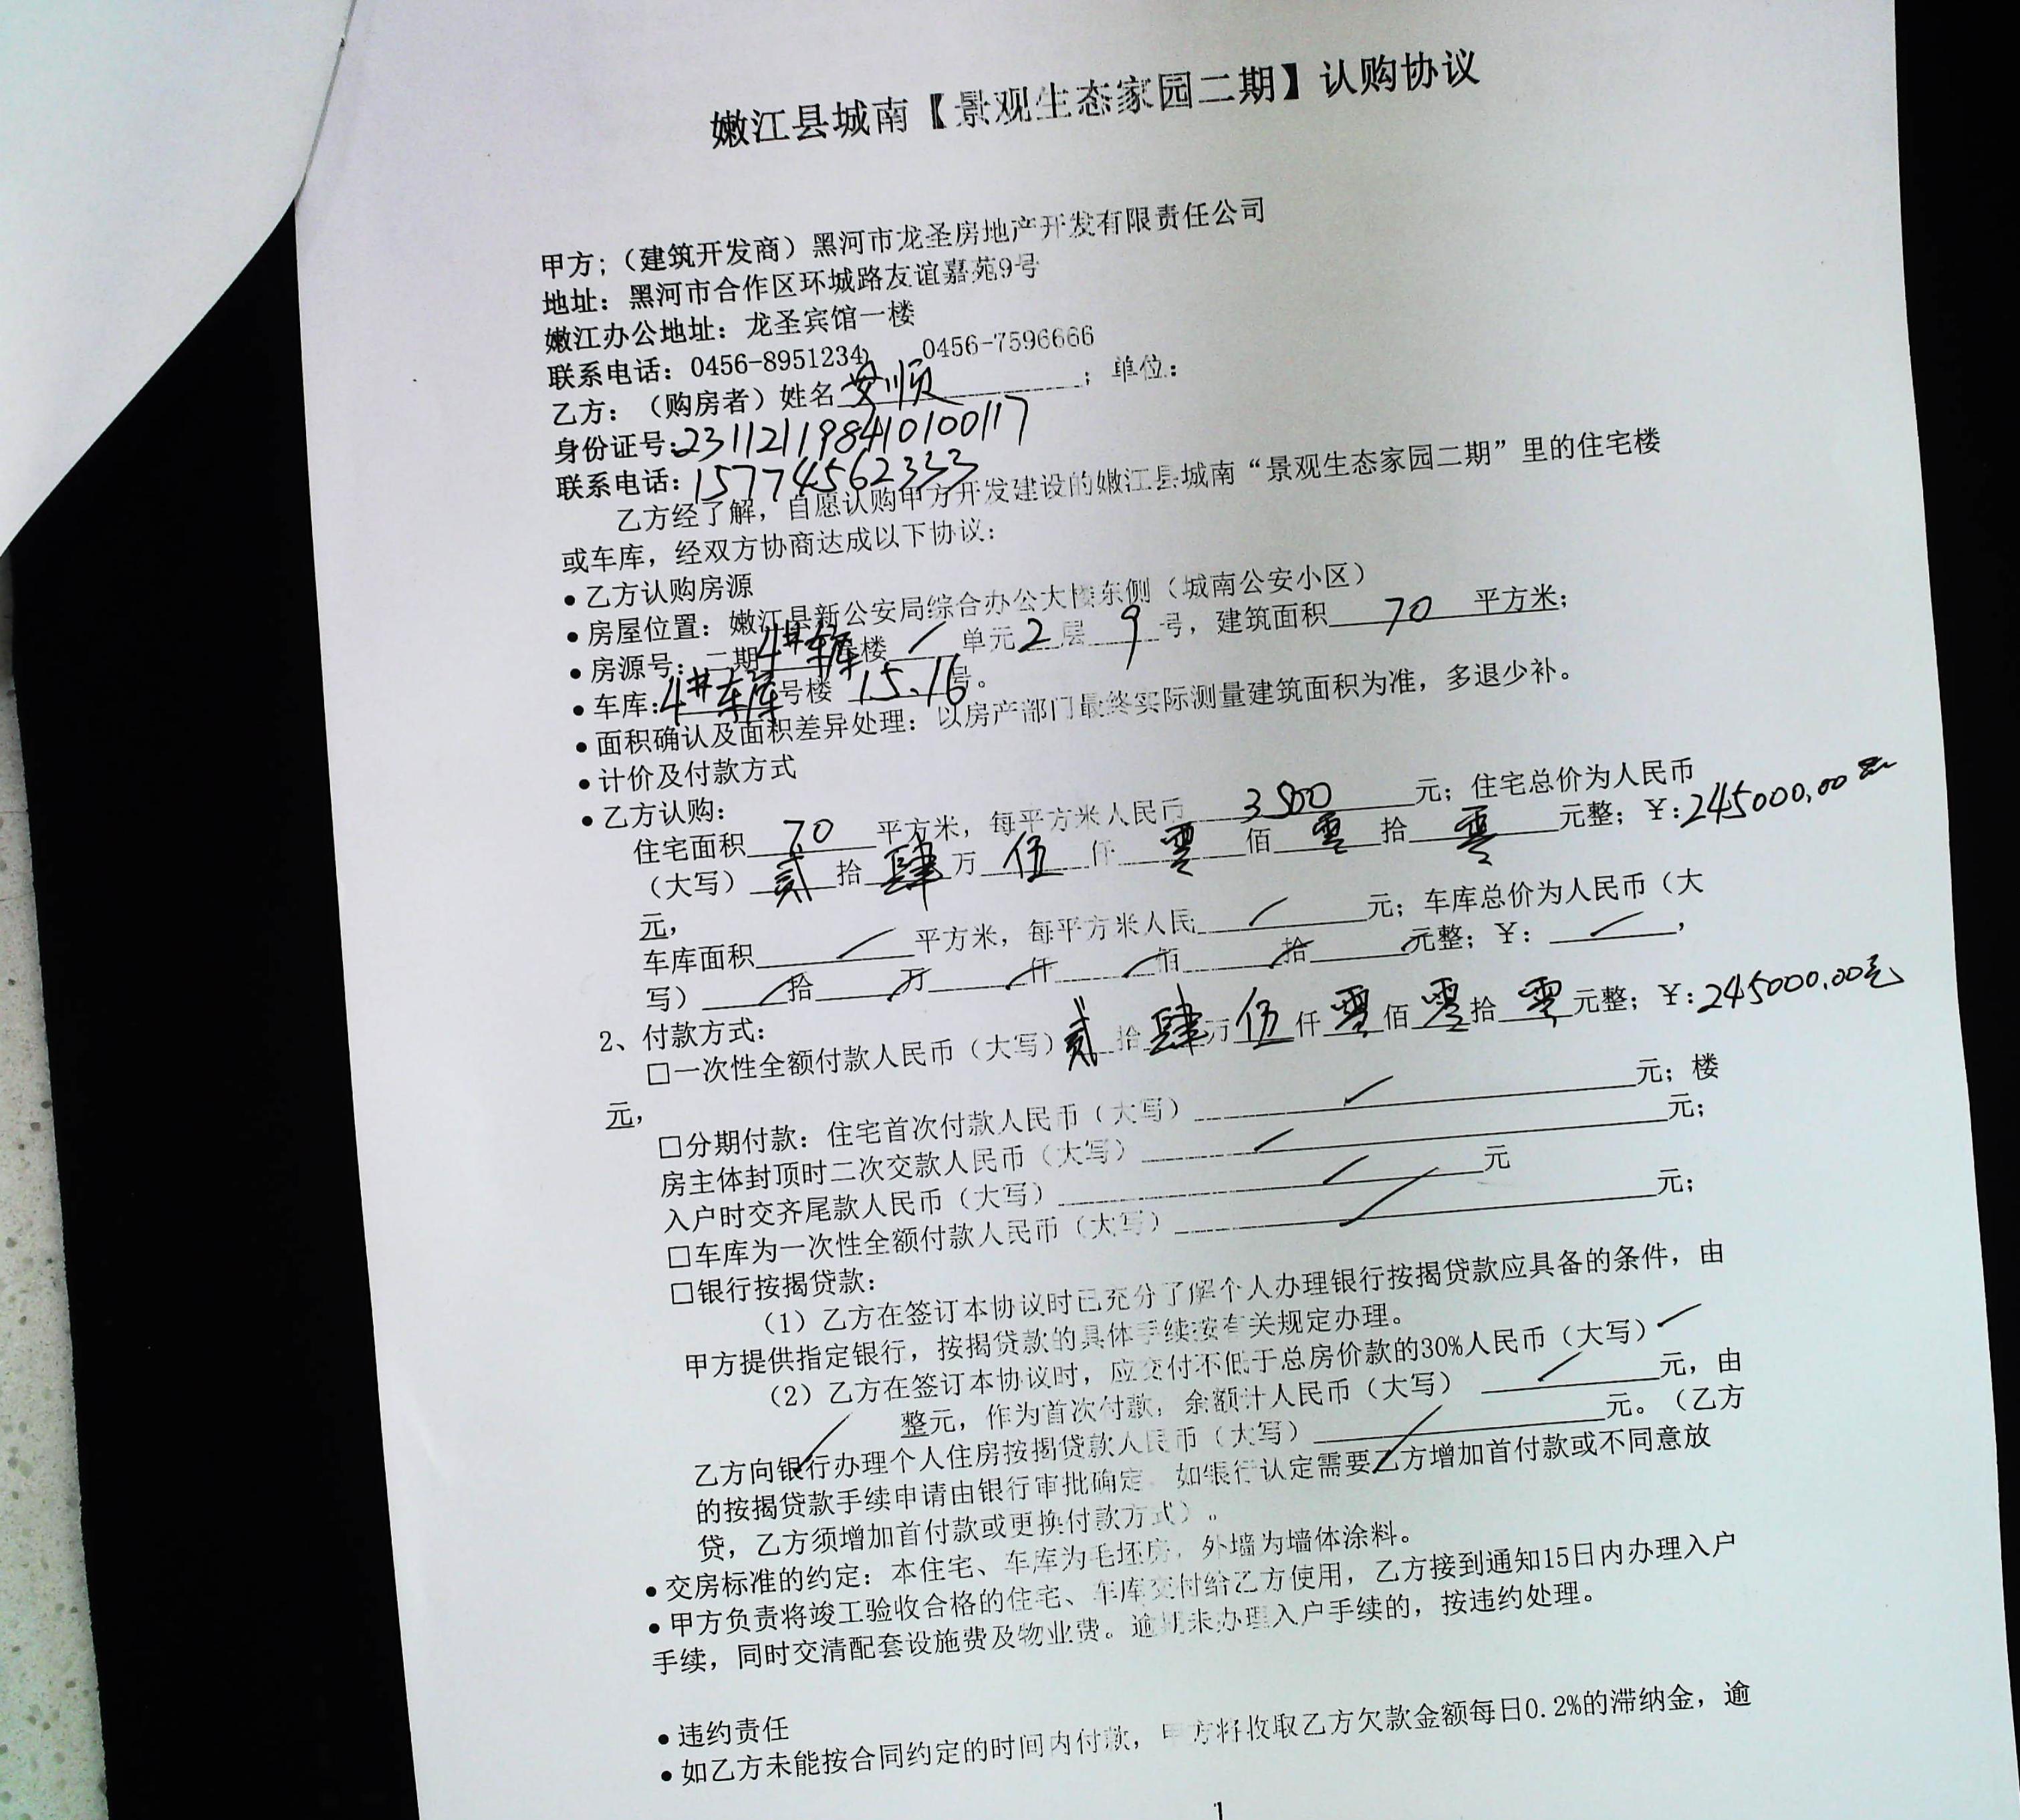 嫩江县城南【景观生态家园二期】认购协议
甲方;（建筑开发商）黑河市龙圣房地产开发有限责任公司
地址：黑河市合作区环城路友谊嘉苑9号
嫩江办公地址：龙圣宾馆一楼
联系电话：0456-8951234、 0456-7596666
乙方：（购房者）姓名安顺；单位：
身份证号:231121198410100117
联系电话:15774562333
乙方经了解，自愿认购甲方开发建设的嫩江县城南“景观生态家园二期”里的住宅楼
或车库，经双方协商达成以下协议：
•乙方认购房源
•房屋位置：嫩江县新公安局综合办公大楼东侧（城南公安小区）
•房源号：二期4#车库楼 / 单元2层9号，建筑面积70平方米；
•车库:4#车库号楼 15.16号。
•面积确认及面积差异处理：以房产部门最终实际测量建筑面积为准，多退少补。
•计价及付款方式
•乙方认购：
住宅面积70平方米，每平方米人民币3500元；住宅总价为人民币
（大写）贰拾肆万伍仟零佰零拾零元整；￥:245000.00元
元，
车库面积 / 平方米，每平方米人民 / 元；车库总价为人民币（大
写） / 拾 / 万 / 仟 / 佰 / 拾 / 元整；￥： / ，
2、付款方式：
□一次性全额付款人民币（大写）贰拾肆万伍仟零佰零拾零元整；￥:245000.00元
元，
□分期付款：住宅首次付款人民币（大写） / 元；楼
房主体封顶时二次交款人民币（大写） / 元；
入户时交齐尾款人民币（大写） / 元
□车库为一次性全额付款人民币（大写） / 元；
□银行按揭贷款：
（1）乙方在签订本协议时已充分了解个人办理银行按揭贷款应具备的条件，由
甲方提供指定银行，按揭贷款的具体手续按有关规定办理。
（2）乙方在签订本协议时，应交付不低于总房价款的30%人民币（大写） /
/ 整元，作为首次付款，余额计人民币（大写） / 元，由
乙方向银行办理个人住房按揭贷款人民币（大写） / 元。（乙方
的按揭贷款手续申请由银行审批确定，如银行认定需要乙方增加首付款或不同意放
贷，乙方须增加首付款或更换付款方式）。
•交房标准的约定：本住宅、车库为毛坯房，外墙为墙体涂料。
•甲方负责将竣工验收合格的住宅、车库交付给乙方使用，乙方接到通知15日内办理入户
手续，同时交清配套设施费及物业费。逾期未办理入户手续的，按违约处理。
•违约责任
•如乙方未能按合同约定的时间内付款，甲方将收取乙方欠款金额每日0.2%的滞纳金，逾
1